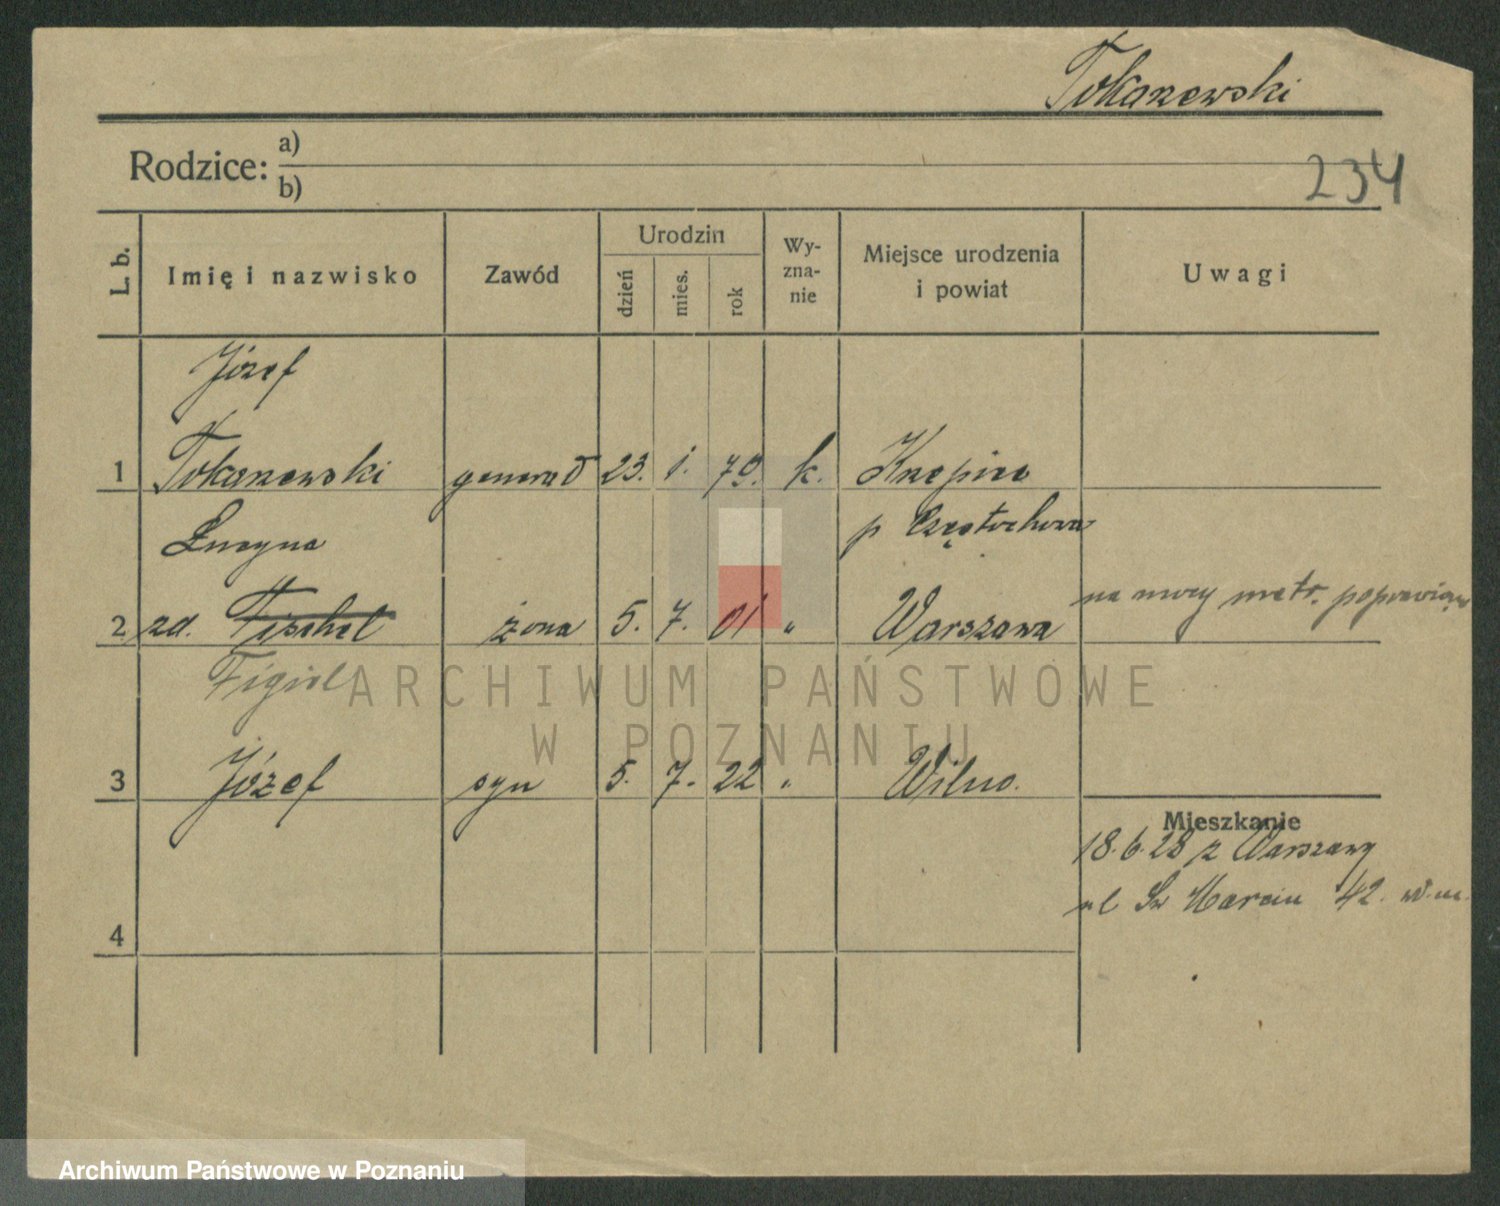 Tokarzewski
Rodzice: a)
b)
234
L. b.
Imię i nazwisko
Zawód
Urodzin
dzień
mies.
rok
Wy-
zna-
nie
Miejsce urodzenia
i powiat
Uwagi
Józef
1 Tokarzewski generał 23. 1. k. Krzepice
p Częstochowa
Lucyna
2 zd. Fischel żona 5. 7. 01 " Warszawa na mocy metr.
Figiel
3 Józef syn 5. 7. 22 " Wilno.
Mieszkanie
18.6.28 z Warszawy
ul Św Marcin 42.
4
ARCHIWUM PAŃSTWOWE
W POZNANIU
Archiwum Państwowe w Poznaniu